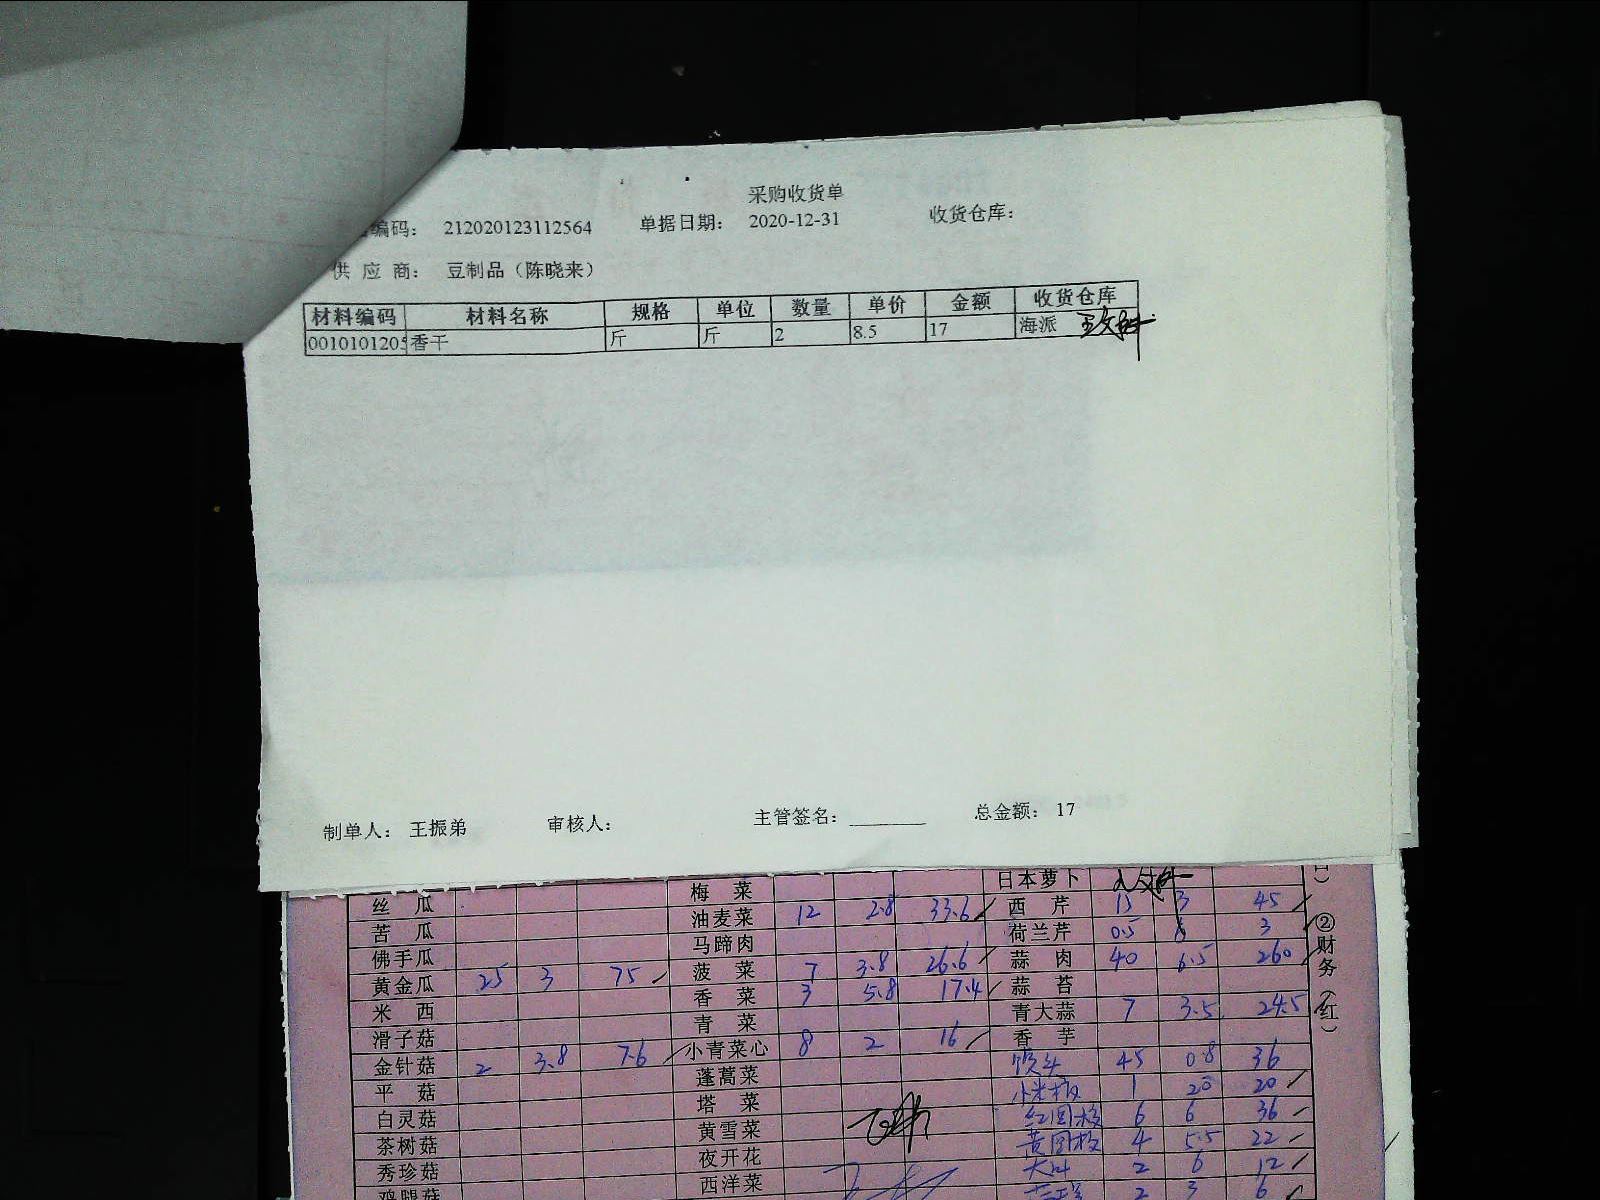 采购收货单
编码： 212020123112564 单据日期： 2020-12-31 收货仓库：
供 应 商： 豆制品（陈晓来）
材料编码 材料名称 规格 单位 数量 单价 金额 收货仓库
0010101205 香干 斤 斤 2 8.5 17 海派
制单人： 王振弟 审核人： 主管签名：________ 总金额： 17
梅 菜 日本萝卜
丝 瓜 油麦菜 12 2.8 33.6 西 芹 15 3 45
苦 瓜 马蹄肉 荷兰芹 0.5 6 3
佛手瓜 菠 菜 7 3.8 26.6 蒜 肉 40 6.5 260
黄金瓜 25 3 75 香 菜 3 5.8 17.4 蒜 苔
米 西 青 菜 青大蒜 7 3.5 24.5
滑子菇 小青菜心 8 2 16 香 芋
金针菇 2 3.8 7.6 蓬蒿菜 馒头 45 0.8 36
平 菇 塔 菜 1 20 20
白灵菇 黄雪菜 红圆椒 6 6 36
茶树菇 夜开花 黄圆椒 4 5.5 22
秀珍菇 西洋菜 2 6 12
鸡腿菇 2 3 6
②财务（红）